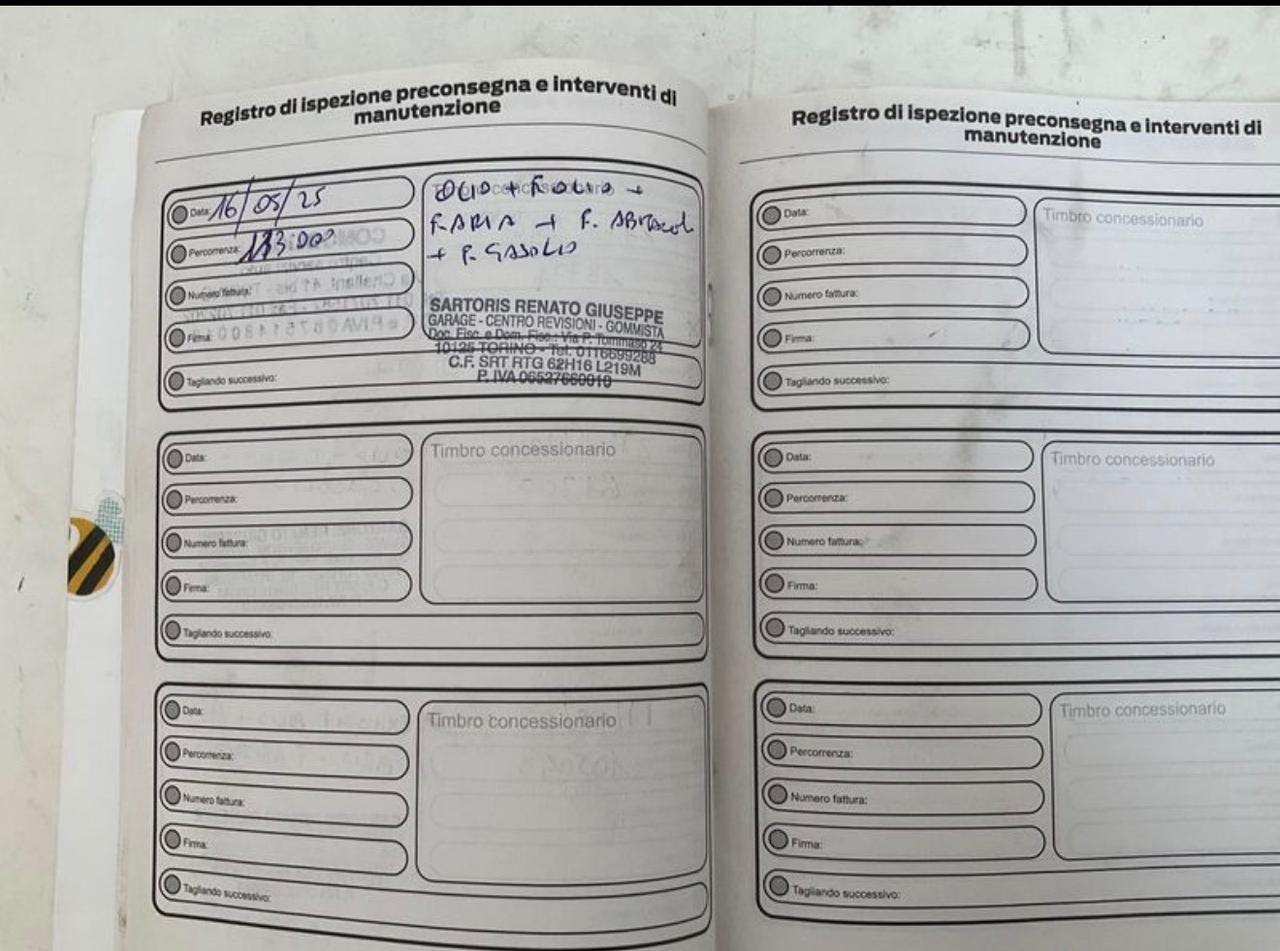 Registro di ispezione preconsegna e interventi di
manutenzione
Data: 16/05/25
Percorrenza:
Numero fattura:
Firma:
Tagliando successivo:
Timbro concessionario
OLIO + F. OLIO +
F. ARIA + F. ABITACOL
+ F. GASOLIO
SARTORIS RENATO GIUSEPPE
GARAGE - CENTRO REVISIONI - GOMMISTA
Doc. Fisc. e Dom. Fisc.: Via P. Tommaso 24
10125 TORINO - Tel. 0116699288
C.F. SRT RTG 62H16 L219M
P. IVA 06527660010
Data:
Percorrenza:
Numero fattura:
Firma:
Tagliando successivo:
Timbro concessionario
Data:
Percorrenza:
Numero fattura:
Firma:
Tagliando successivo:
Timbro concessionario
Registro di ispezione preconsegna e interventi di
manutenzione
Data:
Percorrenza:
Numero fattura:
Firma:
Tagliando successivo:
Timbro concessionario
Data:
Percorrenza:
Numero fattura:
Firma:
Tagliando successivo:
Timbro concessionario
Data:
Percorrenza:
Numero fattura:
Firma:
Tagliando successivo:
Timbro concessionario